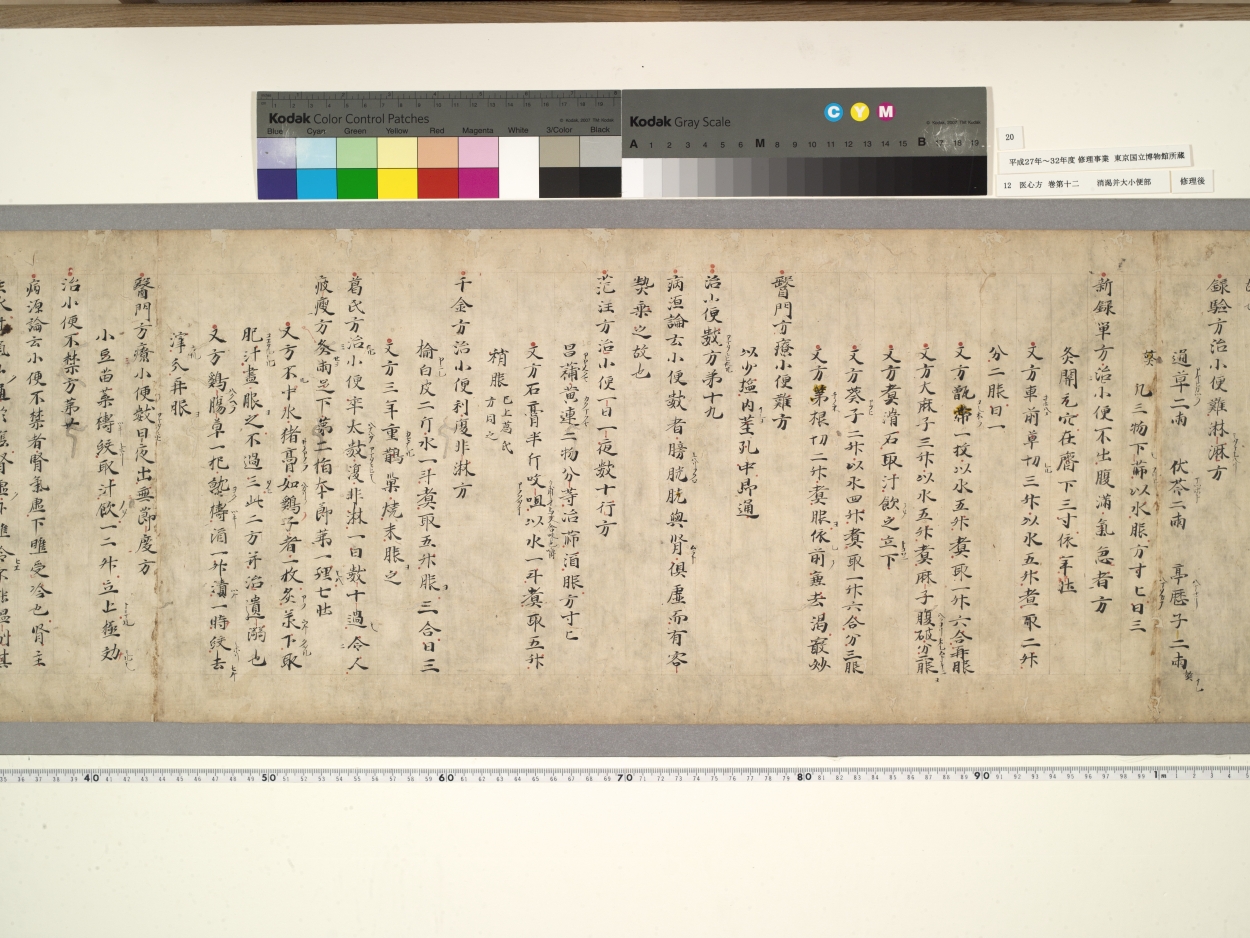 Kodak Color Control Patches
Blue Cyan Green Yellow Red Magenta White 3/Color Black
Kodak Gray Scale
C Y M
A 1 2 3 4 5 6 M 8 9 10 11 12 13 14 15 B 17 18 19
20
平成27年～32年度 修理事業 東京国立博物館所蔵
12 医心方 巻第十二 消渇并大小便部
修理後
録験方治小便難淋瀝方
通草二兩 伏苓二兩 亭歷子二兩
凡三物下篩以水服方寸匕日三
新録単方治小便不出腹滿氣急者方
灸開元穴在齊下三寸依年壮
又方車前草切三升以水五升煮取二升
分二服日一
又方甑帯一枚以水五升煑取一升六合再服
又方大麻子三升以水五升煑麻子腹破分二服
又方煑滑石取汁飲之立下
又方葵子二升以水四升煑取一升六合分三服
又方 根切二升煑服依前兼去渴最妙
醫門方療小便難方
以少塩内莖孔中即通
治小便数方第十九
病源論云小便数者膀胱与腎俱虚而有客
熱乗之故也
范汪方治小便一日一夜数十行方
昌蒲黄連二物分等治篩酒服方寸匕
又方石膏半斤㕮咀以水一斗煑取五升
稍服 已上葛氏方同之
千金方治小便利復非淋方
榆白皮二斤水一斗煑取五升服三合日三
又方三年重鵲巢燒末服之
葛氏方治小便卒太数復非淋一日数十過令人
疲瘦方灸兩足下第二指本即第一理七壮
又方不中水猪膏如鷄子者二枚灸 下取
肥汁盡服之不過三此二方并治遺溺也
又方鷄腸草一把熟擣酒一升漬一時絞去
滓分再服
醫門方療小便数日夜出無節度方
小豆苗葉擣絞取汁飲一二升立上極効
治小便不禁方第廿
病源論云小便不禁者腎氣虛下膲受冷也腎主